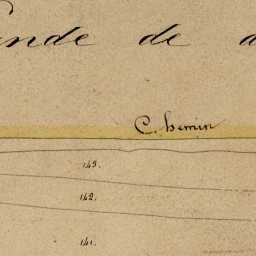 de
Chemin
143.
142.
141.